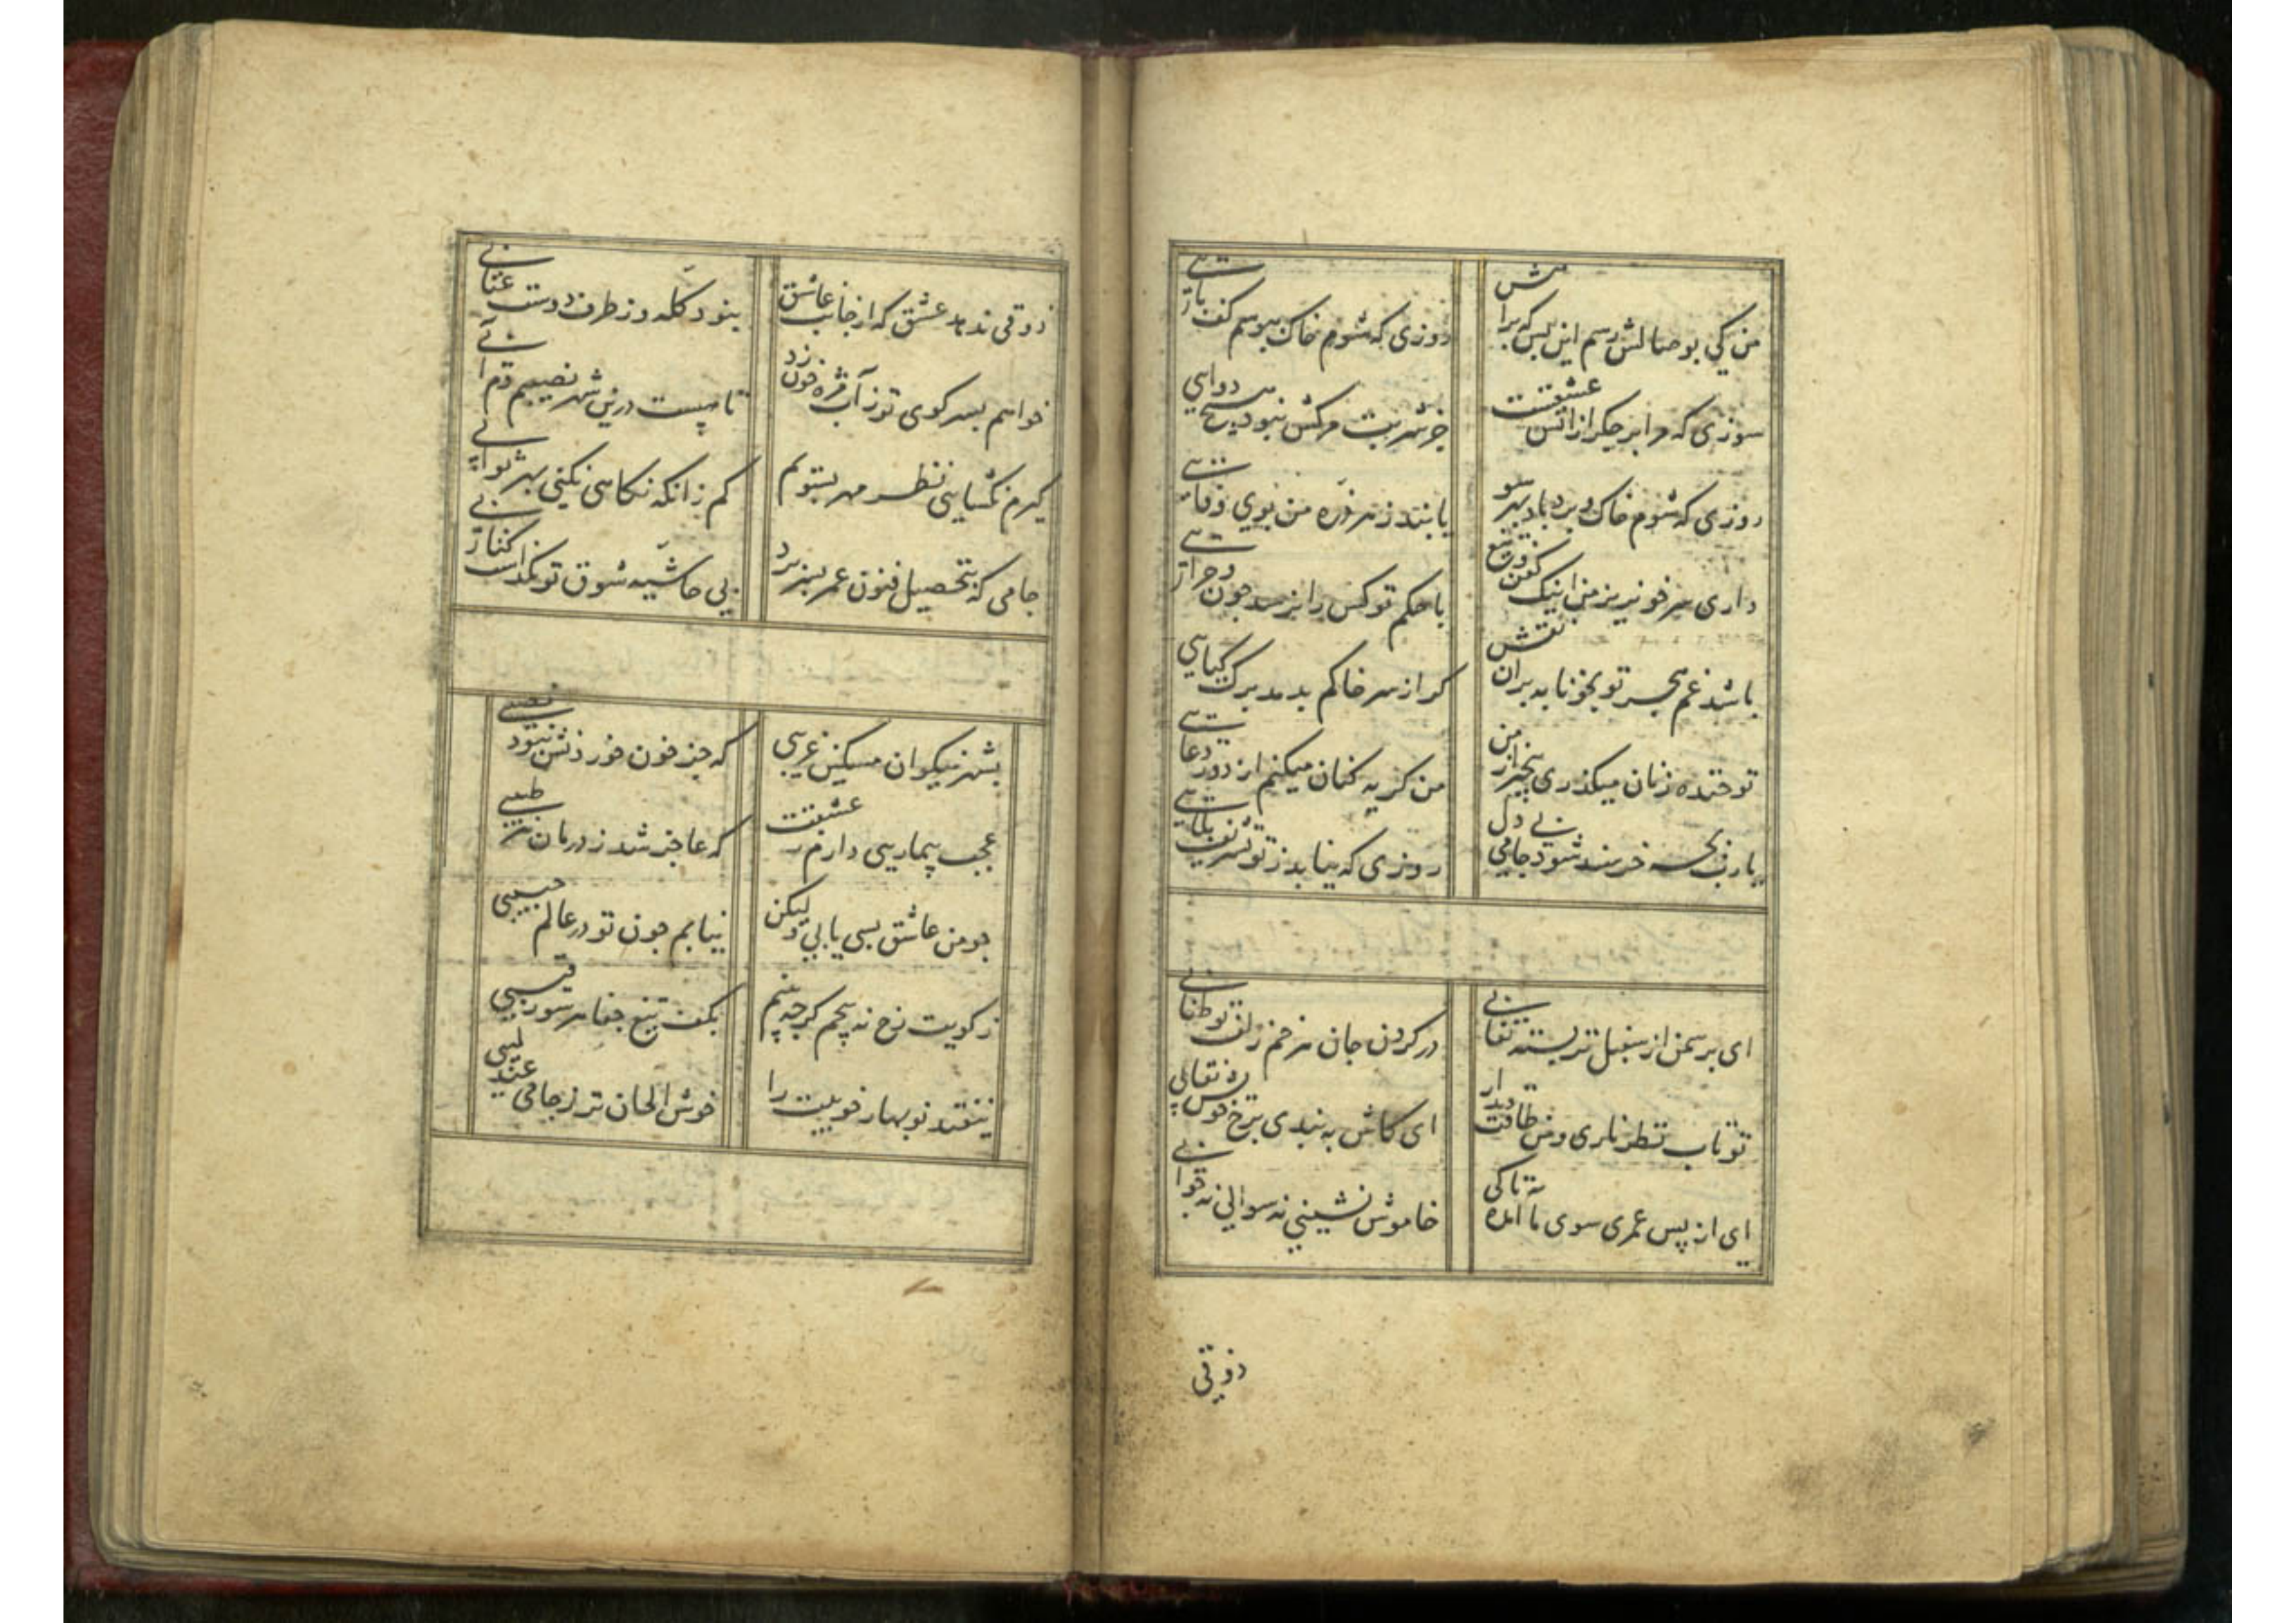 من کی بوصالش رسم این بس که براهش
روزی که شوم خاک ببوسم کف پائی
سوزی که مرا بر جگر از آتش عشقست
جز شربت مرگش نبود هیچ دوایی
روزی که شوم خاک و برد باد بهر سو
یابند ز هر ذره من بوی وفائی
داری سر خونریز من اینک کفن و تیغ
با حکم تو کس را نرسد چون و چرائی
باشد غم هجر تو بخونابه بران نقش
گر از سر خاکم بدمد برگ گیاهی
تو خنده زنان میگذری بیخبر از من
من گریه کنان میکنم از دور دعائی
یا رب بچه خرسند شود جامی بی دل
روزی که نیابد ز تو تشریف بلائی
ای بر سمن از سنبل تر بسته نقابی
در گردن جان هر خم زلف تو طنابی
تو تاب نظر ناری و من طاقت دیدار
ای کاش به بندی برخ خویش نقابی
ای از پس عمری سوی ما آمده تا کی
خاموش نشینی نه سوالی نه جوابی
ذوقی
ذوقی ندهد عشق که از جانب عاشق
نبود گله وز طرف دوست عتابی
خواهم بسر کوی تو زد آب مژه خون
تا چیست درین شهر نصیبم دم آبی
گیرم نگشایی نظر مهر بسویم
کم زانکه نگاهی نکنی بهر ثوابی
جامی که بتحصیل فنون عمر بسر برد
بی حاشیه شوق تو نگذاشت کتابی
بشهر نیکوان مسکین غریبی
که جز خون خوردنش نبود نصیبی
عجب بیماریی دارم ز عشقت
که عاجز شد ز درمان هر طبیبی
چو من عاشق بسی یابی ولیکن
نیابم چون تو در عالم حبیبی
ز کویت رخ نه پیچم گر چه بینم
بکف تیغ جفا هر سو رقیبی
نیفتد نوبهار خوبیت را
خوش الحان تر ز جامی عندلیبی